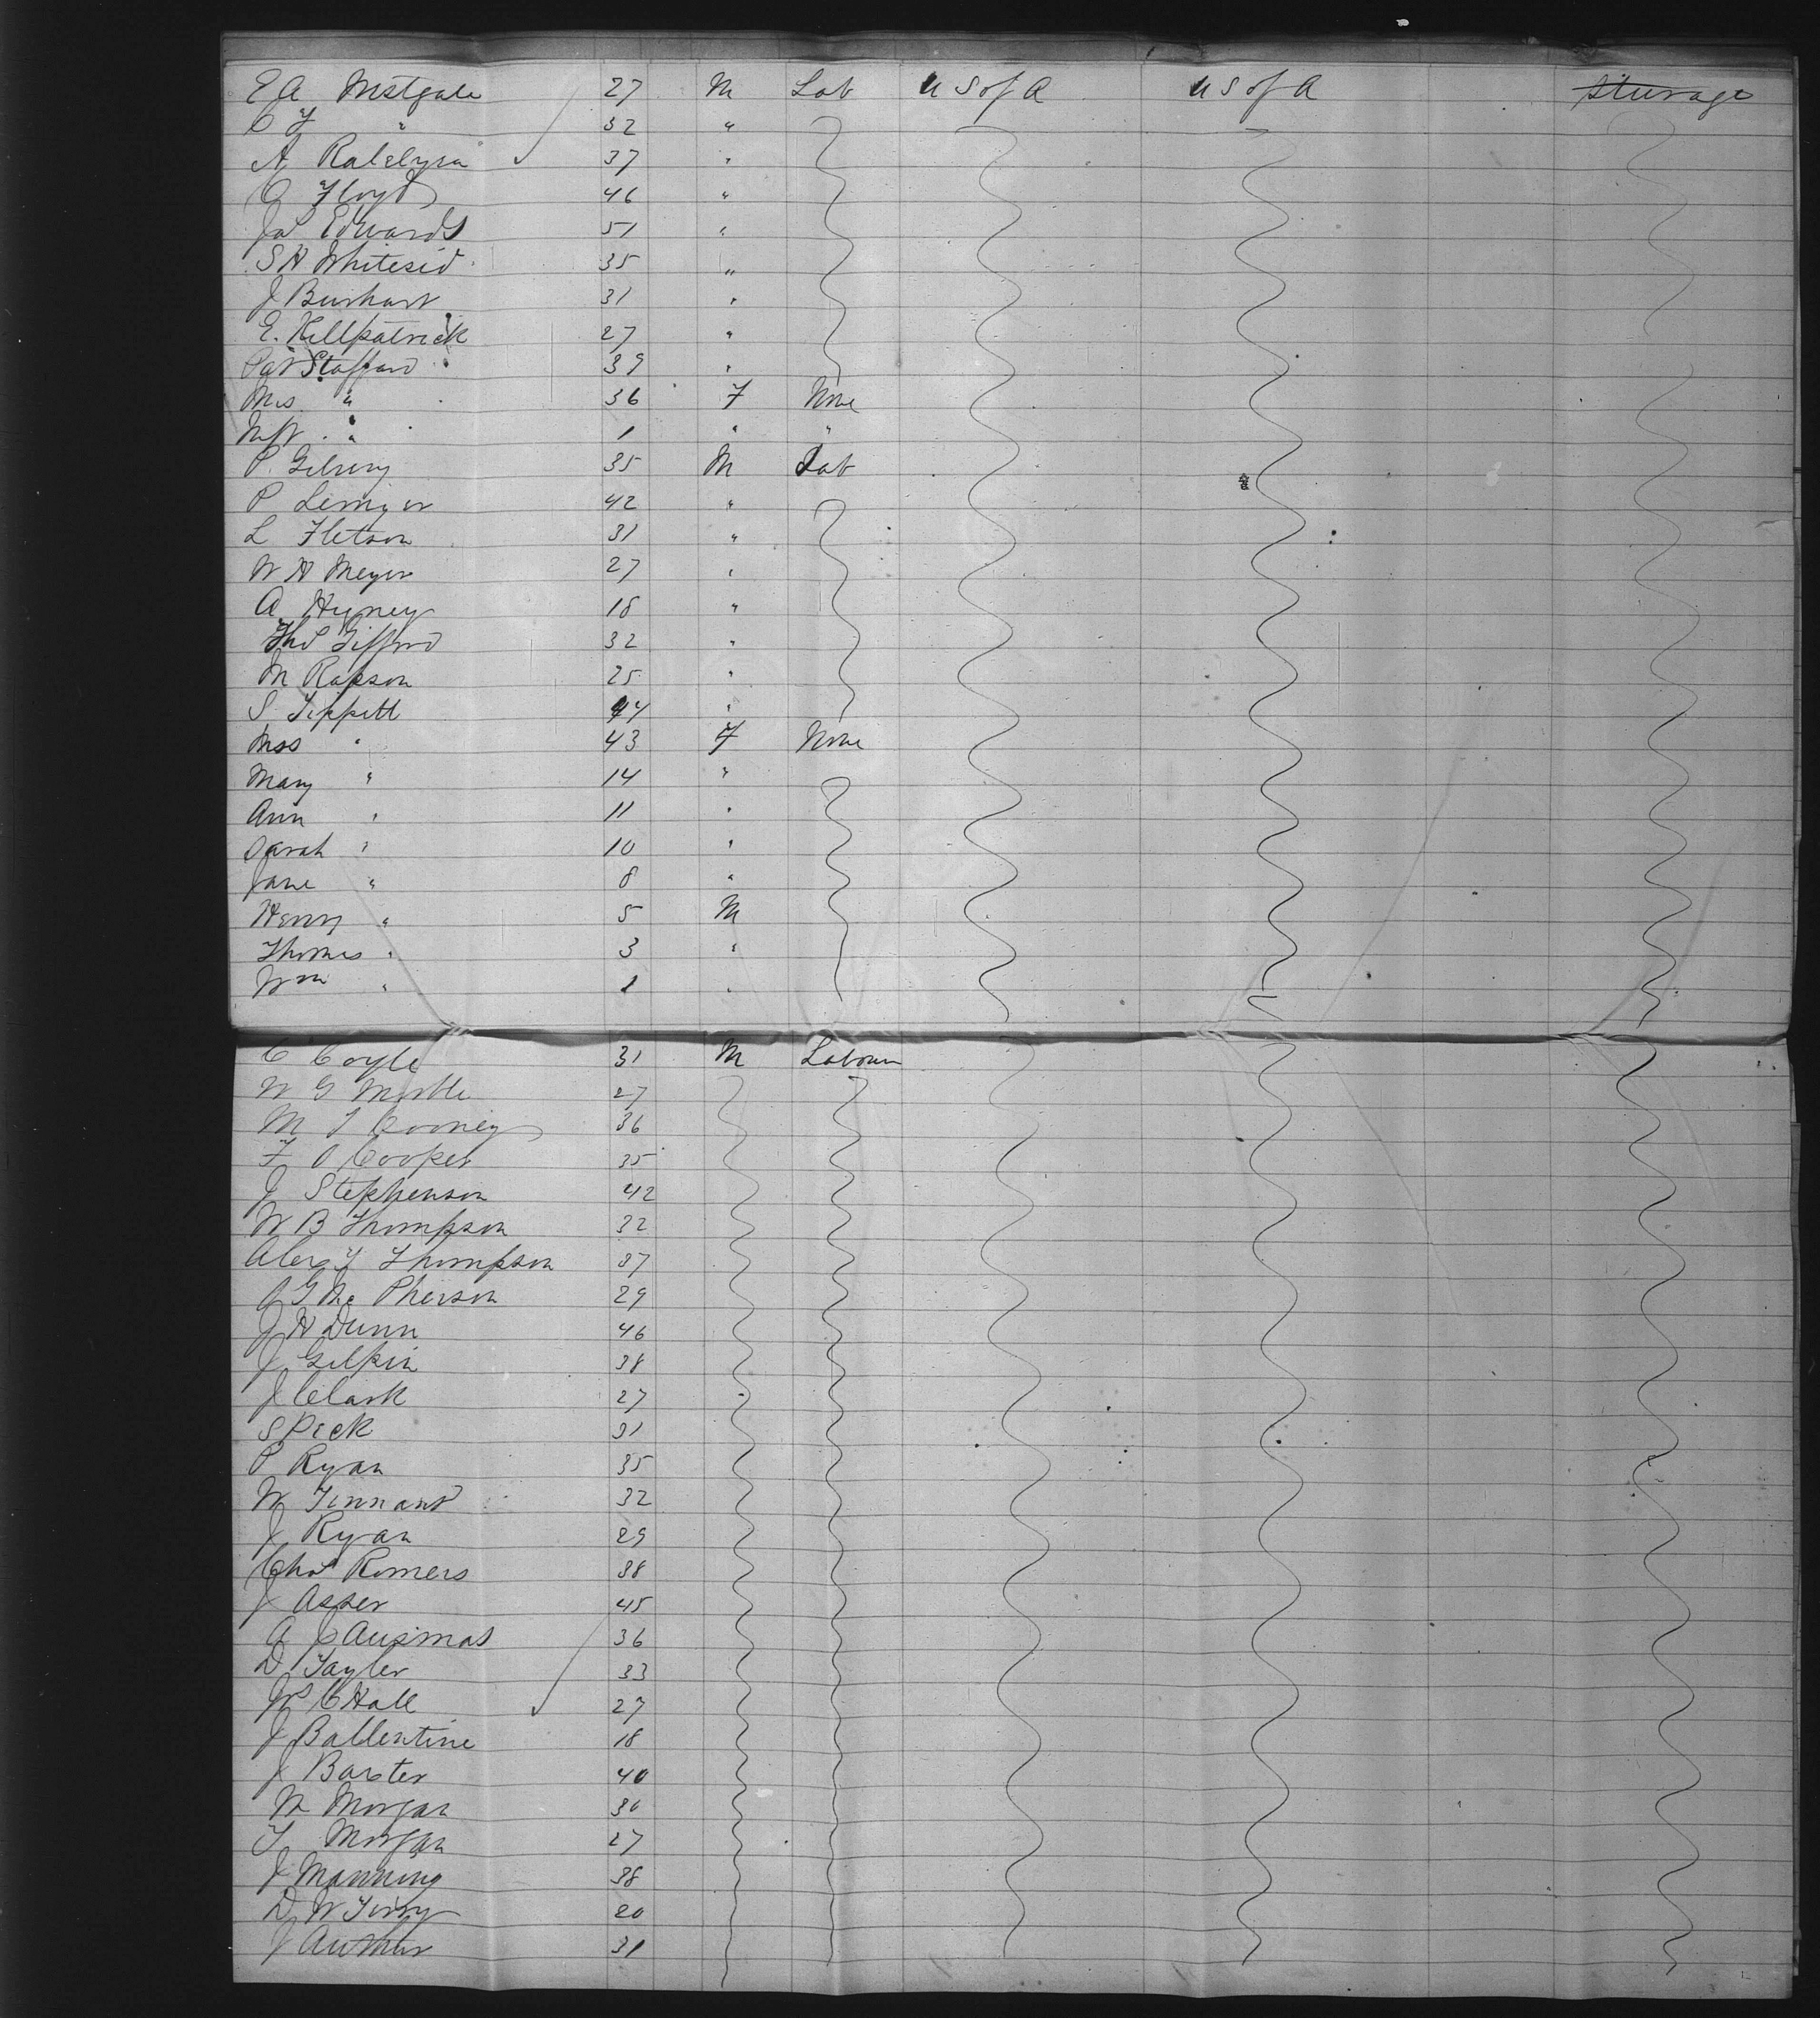 E A Mstgale 27 M Lab U S of A U S of A Sturage
C Y " 32 "
A 37 "
C Floyd 46 "
Jas Edwards 51 "
S H Whitesid 35 "
J Burhart 31 "
E. Killpatrick 27 "
Pat Stafford 39 "
Mrs. " 36 F None
Inft . " 1 " "
P. Gilroy 35 M Lab
P 42 "
L Fletson 31 "
W H Meyer 27 "
A Hyney 18 "
Thos Gifford 32 "
M Rapson 25 "
S Tippett 44 "
Mrs " 43 F None
Mary " 14 "
Ann " 11 "
Sarah " 10 "
Jane " 8 "
Henry " 5 M
Thomas " 3 "
Wm " 1 "
C Coyle 31 M Labour
W G 27
M J Cooney 36
F O Cooper 35
J Stephenson 42
W B Thompson 32
Alex Y Thompson 37
A G Mc Pherson 29
J H Dunn 46
J Gilpin 38
J Clark 27
S Peck 31
P Ryan 35
W Tennant 32
J Ryan 29
Chas Romers 38
J Asper 45
A C Ausmas 36
D Tayler 33
C Hall 27
J Ballentine 18
J Baxter 40
W Morgan 36
Y Morgan 27
J Manning 38
D W Terry 20
J Arthur 31